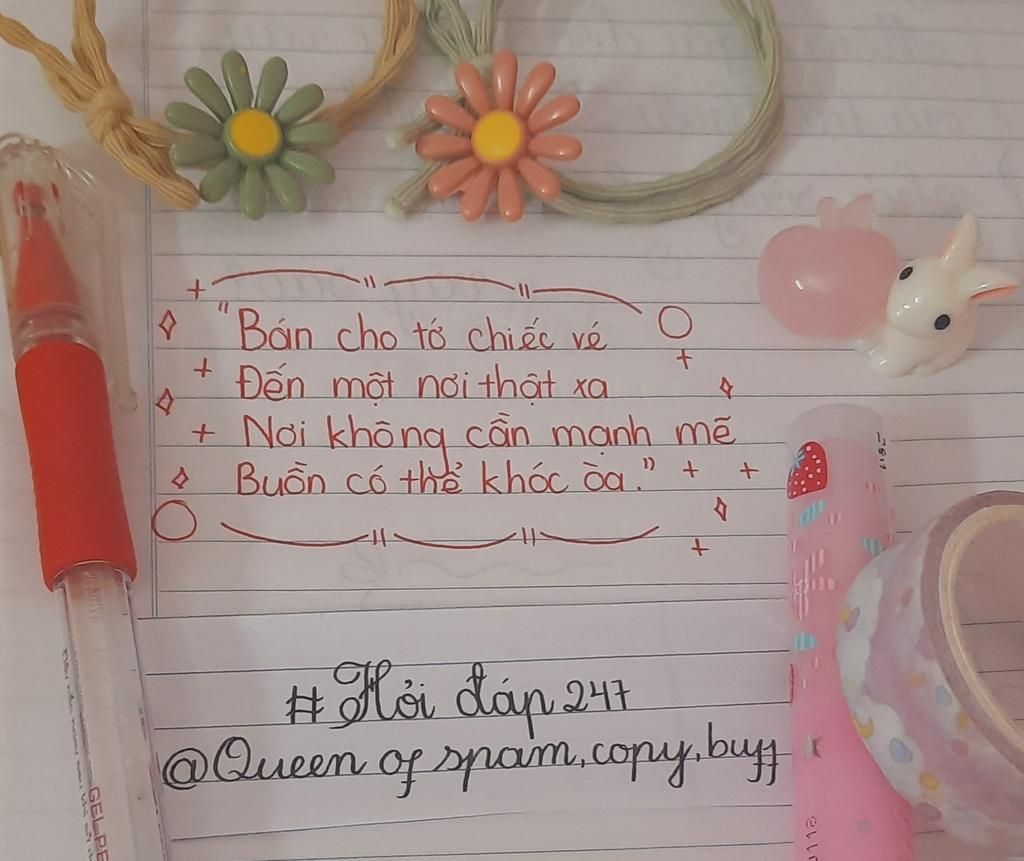 "Bán cho tớ chiếc vé
Đến một nơi thật xa
Nơi không cần mạnh mẽ
Buồn có thể khóc òa."
# Hỏi đáp 247
@Queen of spam, copy, buff
GEL-PE
0118